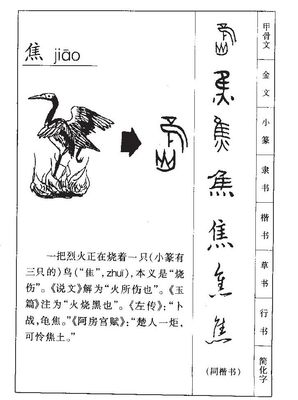 焦 jiāo
一把烈火正在烧着一只(小篆有
三只的)鸟(“隹”,zhuī),本义是“烧
伤”。《说文》解为“火所伤也”。《玉
篇》注为“火烧黑也”。《左传》:“卜
战,龟焦。”《阿房宫赋》:“楚人一炬,
可怜焦土。”
焦
焦
焦
焦
焦
焦
(同楷书)
甲骨文
金文
小篆
隶书
楷书
草书
行书
简化字